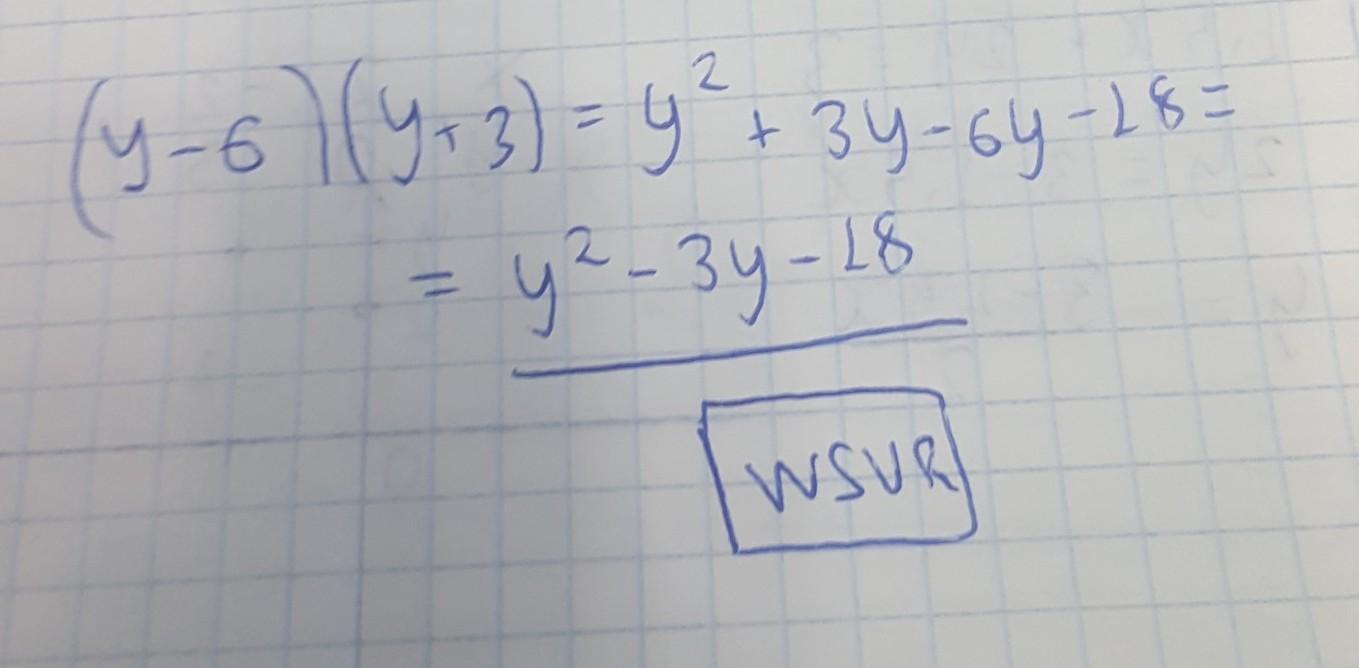 (y-6)(y+3) = y² + 3y - 6y - 18 =
= y² - 3y - 18
WSUR